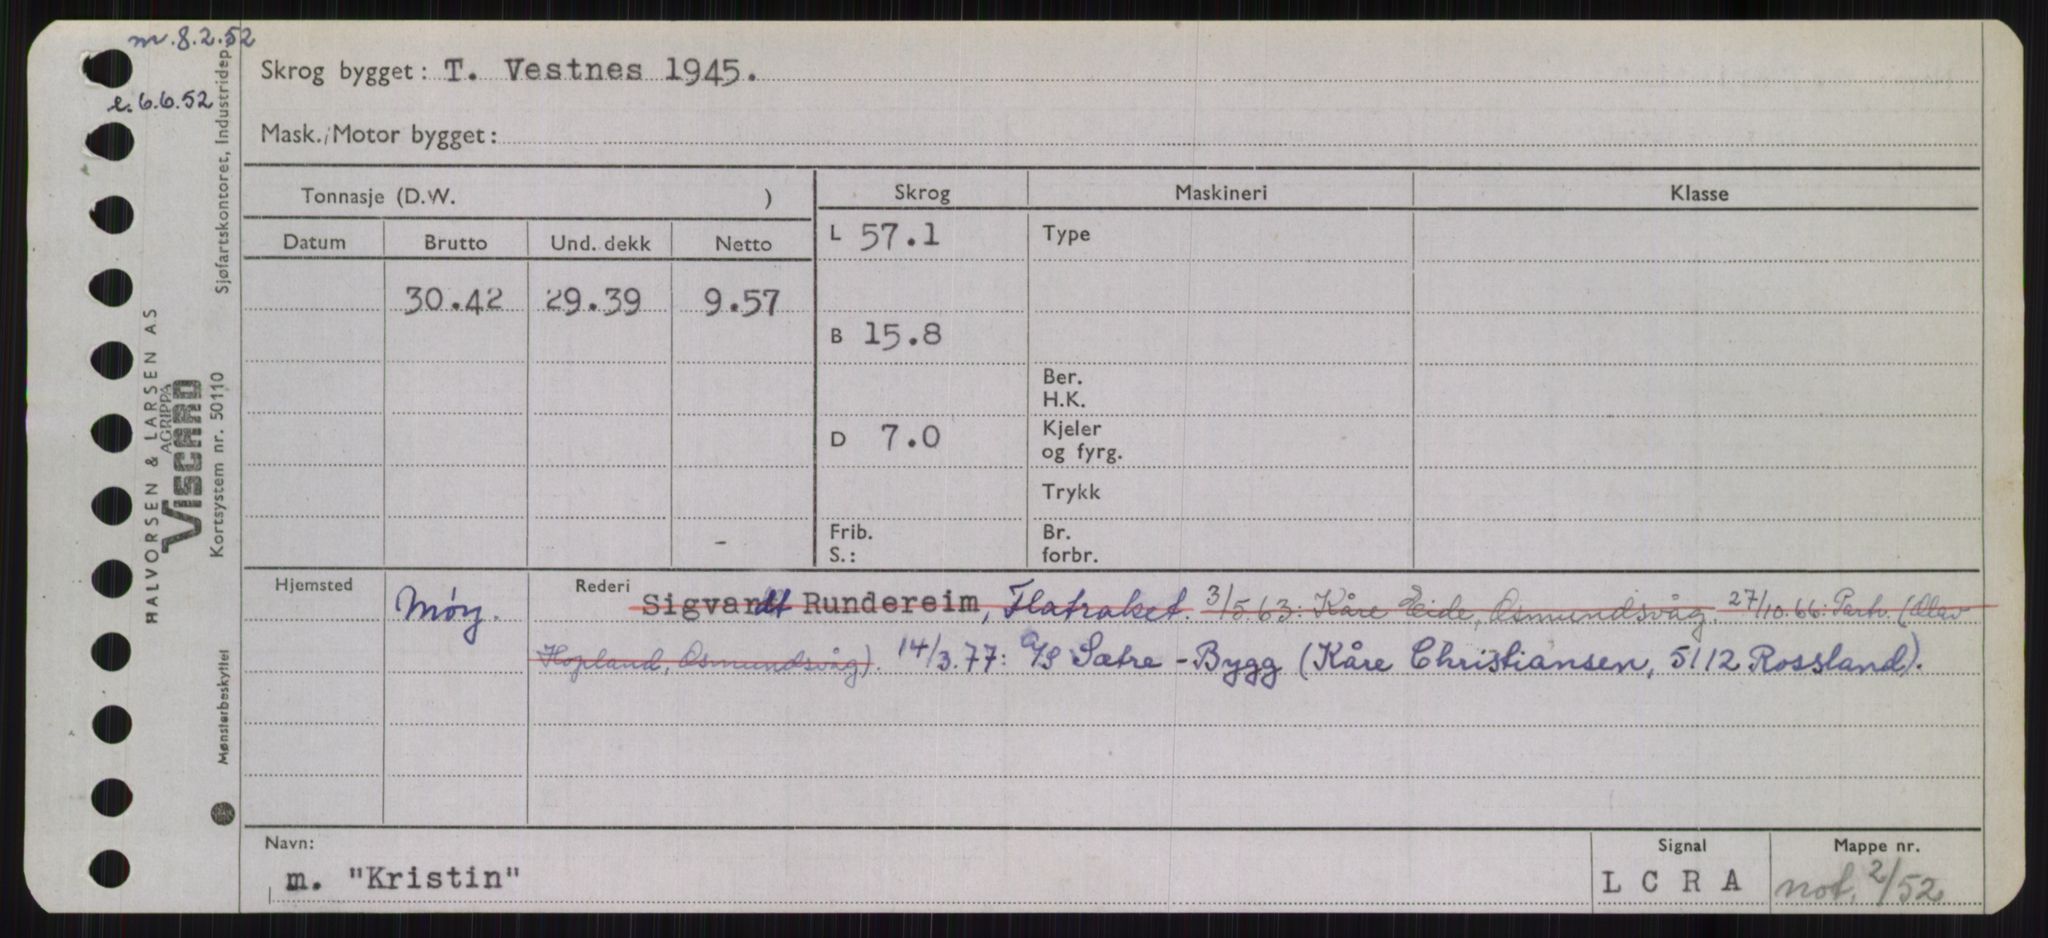 m. 8.2.52
e. 6.6.52
Skrog bygget: T. Vestnes 1945.
Mask./Motor bygget:
Tonnasje (D.W. )
Skrog Maskineri Klasse
Datum Brutto Und. dekk Netto
L 57.1 Type
30.42 29.39 9.57
B 15.8
Ber.
H.K.
D 7.0 Kjeler
og fyrg.
Trykk
-
Frib. Br.
S.: forbr.
Hjemsted Møre. Rederi Sigvardt Rundereim, Flatraket. 3/5.63: Kåre Eide, Osmundsvåg. 27/10.66: Partr. (Olav
Hopland, Osmundsvåg). 14/3.77: A/S Sætre-Bygg (Kåre Christiansen, 5112 Rossland).
Navn: Signal Mappe nr.
m. "Kristin" L C R A not. 2/52
HALVORSEN & LARSEN AS
AGRIPPA
VISCARD
Kortsystem nr. 50110
Sjøfartskontoret, Industridep
Mønsterbeskyttet